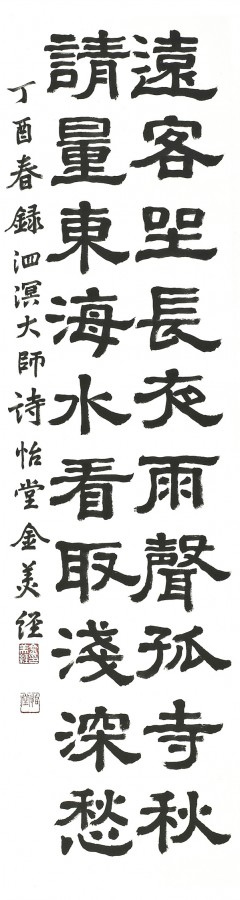 遠客坐長夜雨聲孤寺秋
請量東海水看取淺深愁
丁酉春録泗溟大師詩怡堂金美經